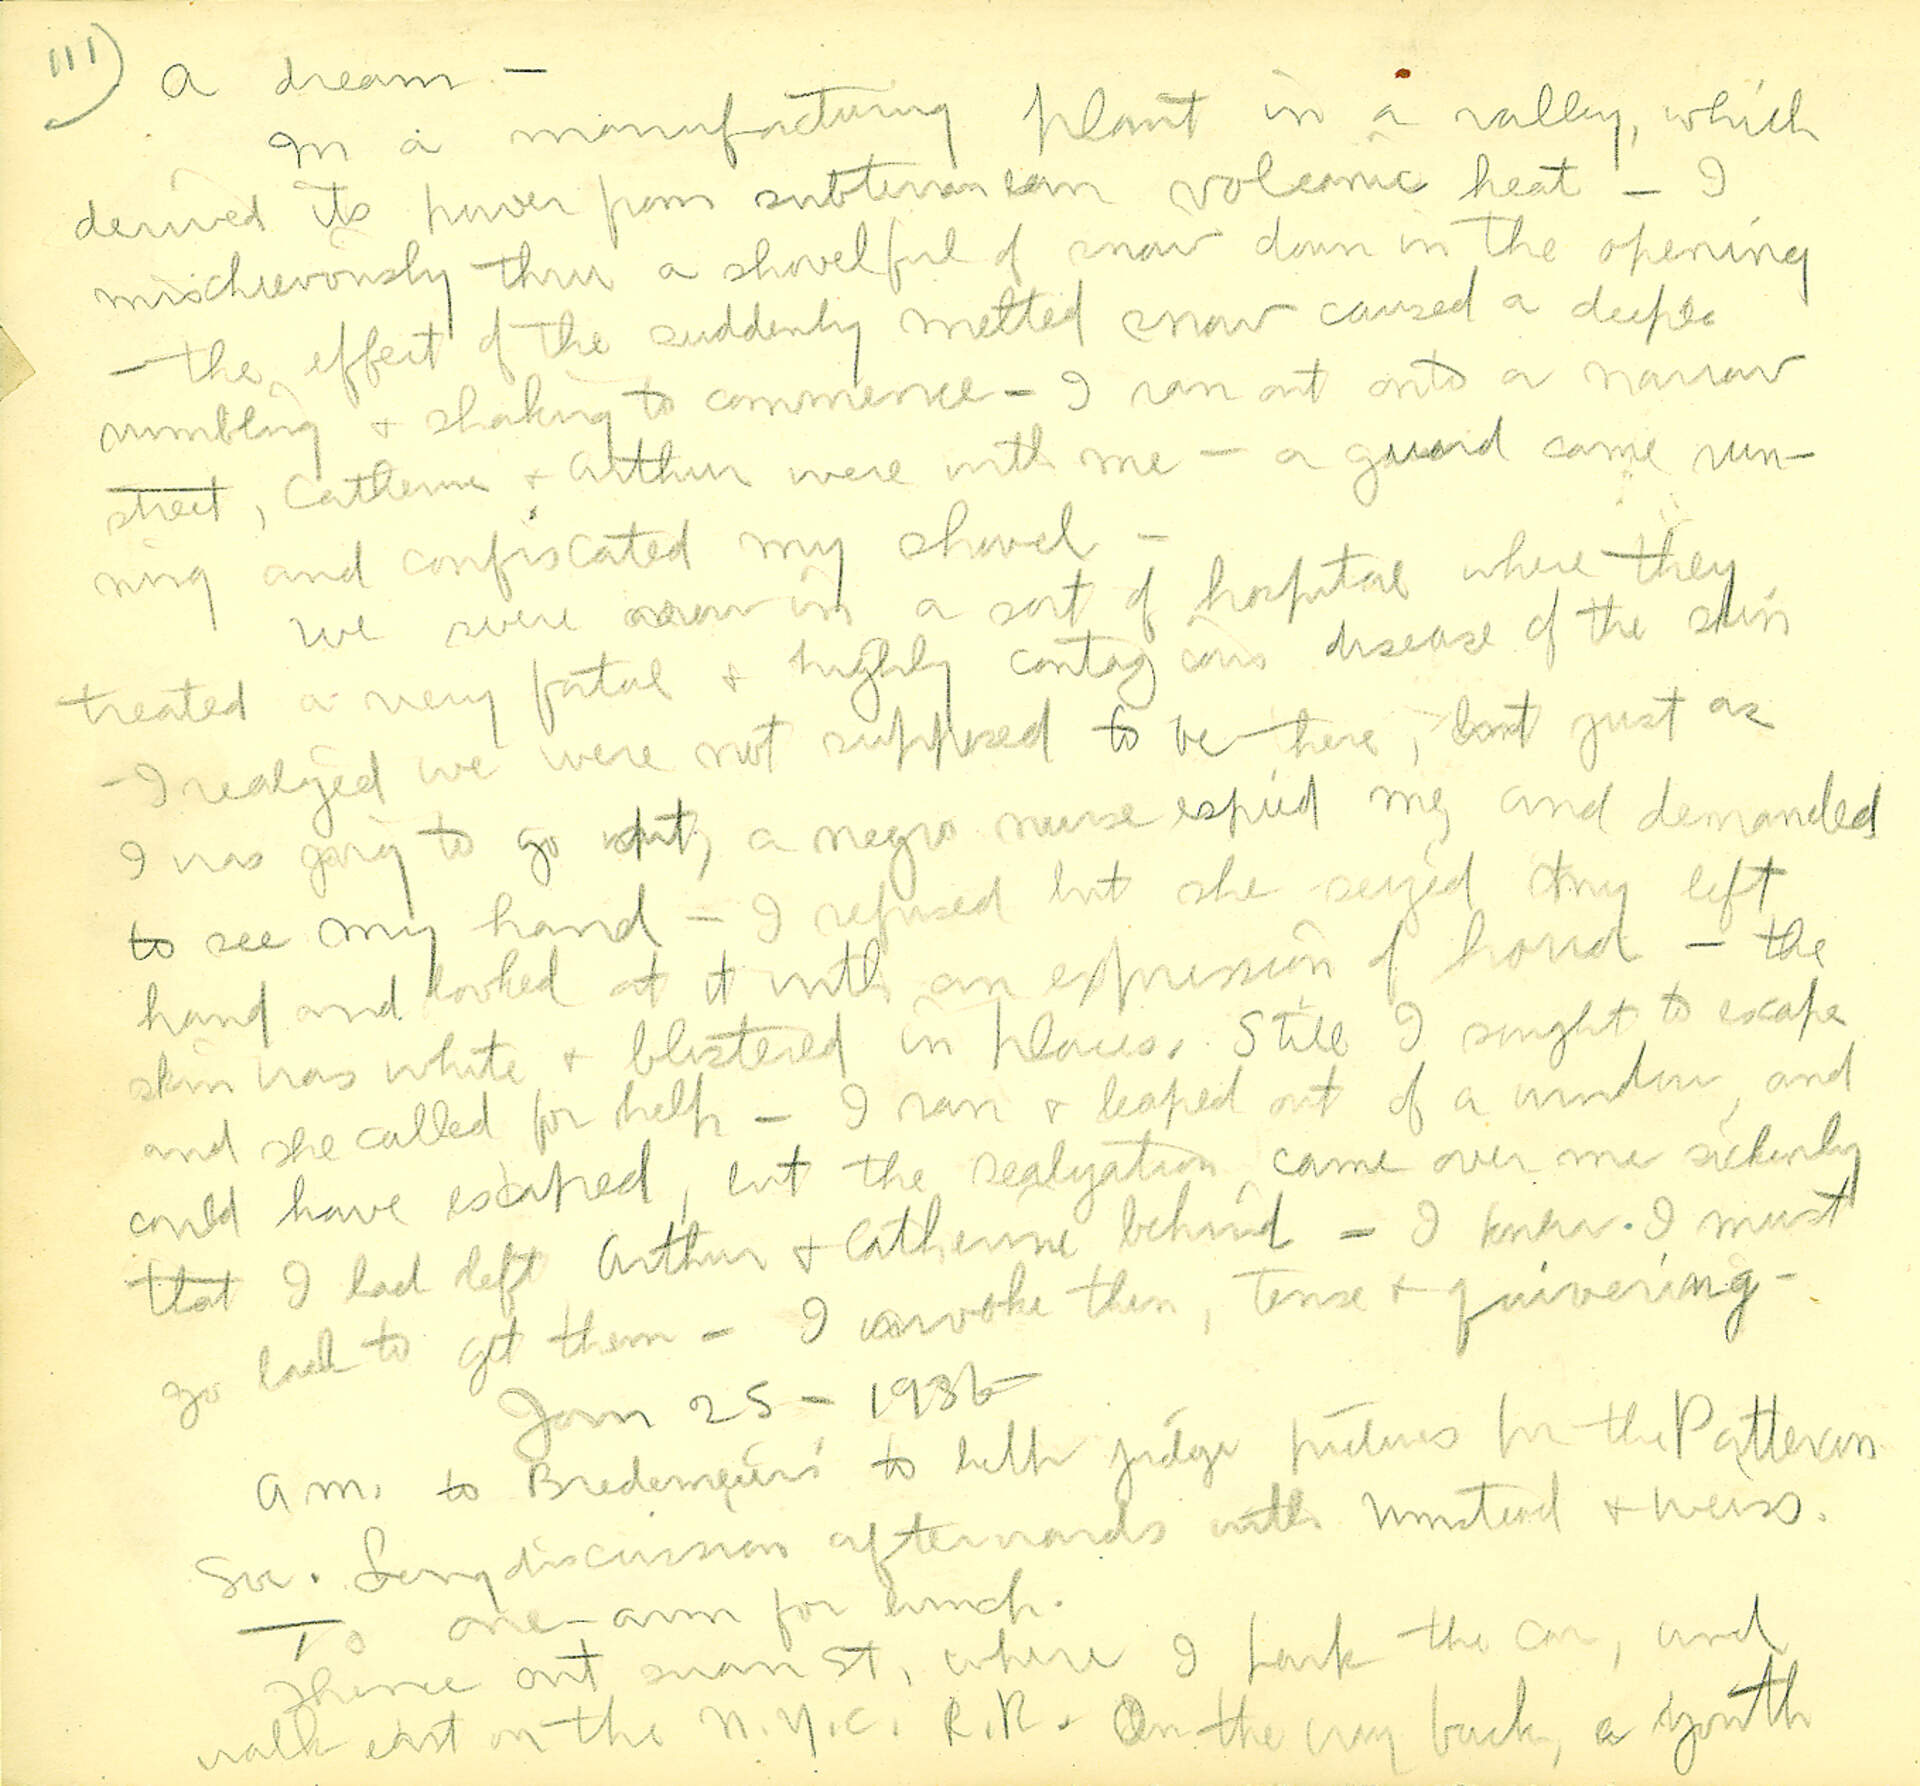 111) A dream —
In a manufacturing plant in a valley, which
derived its power from subterranean volcanic heat — I
mischievously thru a shovelful of snow down in the opening
— the effect of the suddenly melted snow caused a deep
rumbling + shaking to commence — I ran out onto a narrow
street, Catherine + Arthur were with me — a guard came run-
ning and confiscated my shovel —
We were now in a sort of hospital where they
treated a very fatal + highly contagious disease of the skin
— I realized we were not supposed to be there, but just as
I was going to go out, a negro nurse espied me, and demanded
to see my hand — I refused but she seized my left
hand and looked at it with an expression of horror — the
skin was white + blistered in places. Still I sought to escape
and she called for help — I ran + leaped out of a window, and
could have escaped, but the realization came over me sickenly
that I had left Arthur + Catherine behind — I knew I must
go back to get them — I awoke then, tense + quivering —
Jan 25 — 1936 —
A.M. to Bredemeier's to help judge pictures for the Patteran
Soc. Long discussion afterwards with Umstead + Weiss.
To one-arm for lunch.
Thence out Swan St, where I park the car, and
walk east on the N.Y.C. R.R. On the way back, a youth